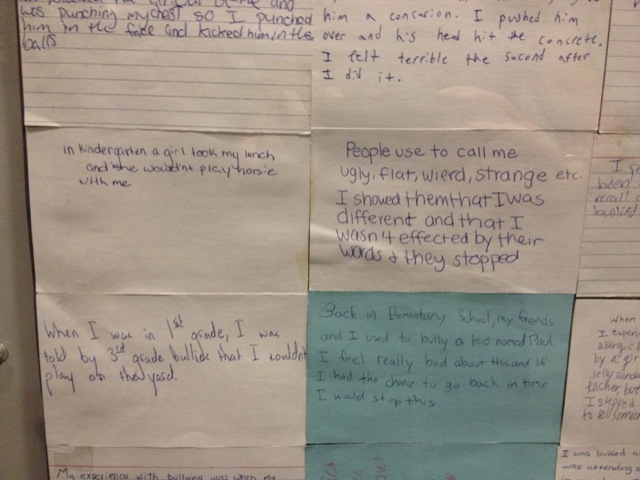 was punching my chest so I punched
him in the face and kicked him in the
balls
him a concarion. I pushed him
over and his head hit the concrete.
I felt terrible the second after
I did it.
in kindergarten a girl took my lunch
and she wouldn't play horsie
with me
People use to call me
ugly, flat, wierd, strange etc.
I showed them that I was
different and that I
wasn't effected by their
words & they stopped
been
recall
bullied
When I was in 1st grade, I was
told by 3rd grade bullies that I couldn't
play on the yard.
Back in Elementary School, my friends
and I used to bully a kid named Paul.
I feel really bad about this and if
I had the chance to go back in time
I would stop this.
When
I exper
allergic
by a gir
jelly sand
teacher, but
I stepped
to tell someon
My experience with bullying was when my
I was bullied a
was attending